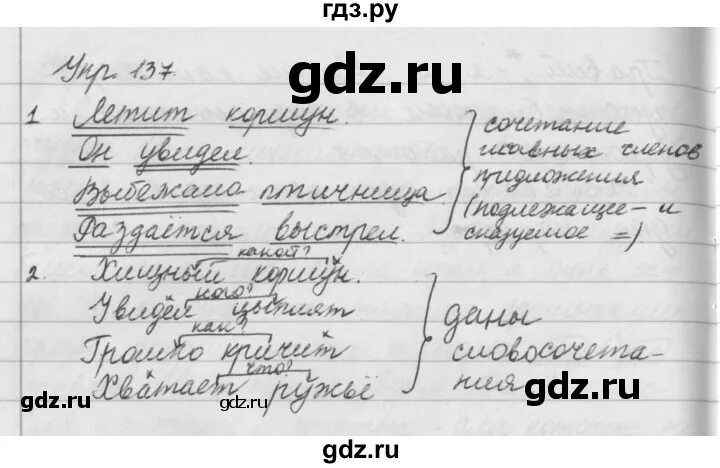 гдз.ру
gdz.ru gdz.ru
Упр. 137.
1. Летит коршун.
Он увидел.
Выбежала птичница.
Раздаётся выстрел.
сочетание
главных членов
предложения
(подлежащее — и
сказуемое =)
gdz.ru gdz.ru
какой?
2. Хищный коршун.
кого?
Увидел цыплят
как?
Громко кричит
что?
Хватает ружьё
даны
словосочета-
ния
gdz.ru gdz.ru
gdz.ru gdz.ru
gdz.ru